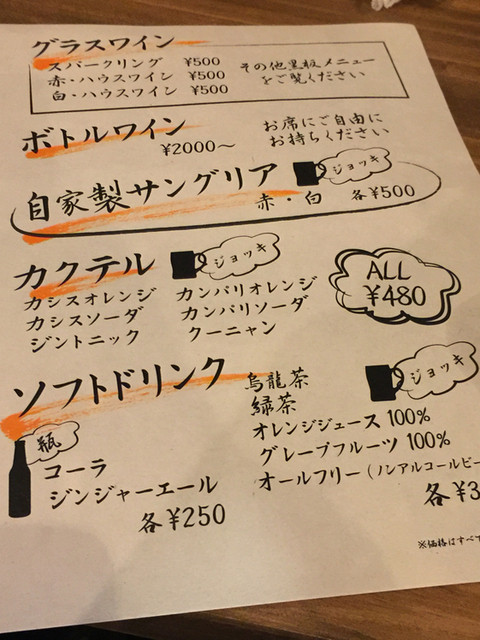 グラスワイン
スパークリング ¥500
赤・ハウスワイン ¥500
白・ハウスワイン ¥500
その他黒板メニュー
をご覧ください
ボトルワイン
¥2000〜
お席にご自由に
お持ちください
自家製サングリア
ジョッキ
赤・白 各¥500
カクテル
ジョッキ
カシスオレンジ
カシスソーダ
ジントニック
カンパリオレンジ
カンパリソーダ
クーニャン
ALL
¥480
ソフトドリンク
瓶
コーラ
ジンジャーエール
各¥250
ジョッキ
烏龍茶
緑茶
オレンジジュース 100%
グレープフルーツ 100%
オールフリー(ノンアルコールビー
各¥3
※価格はすべて